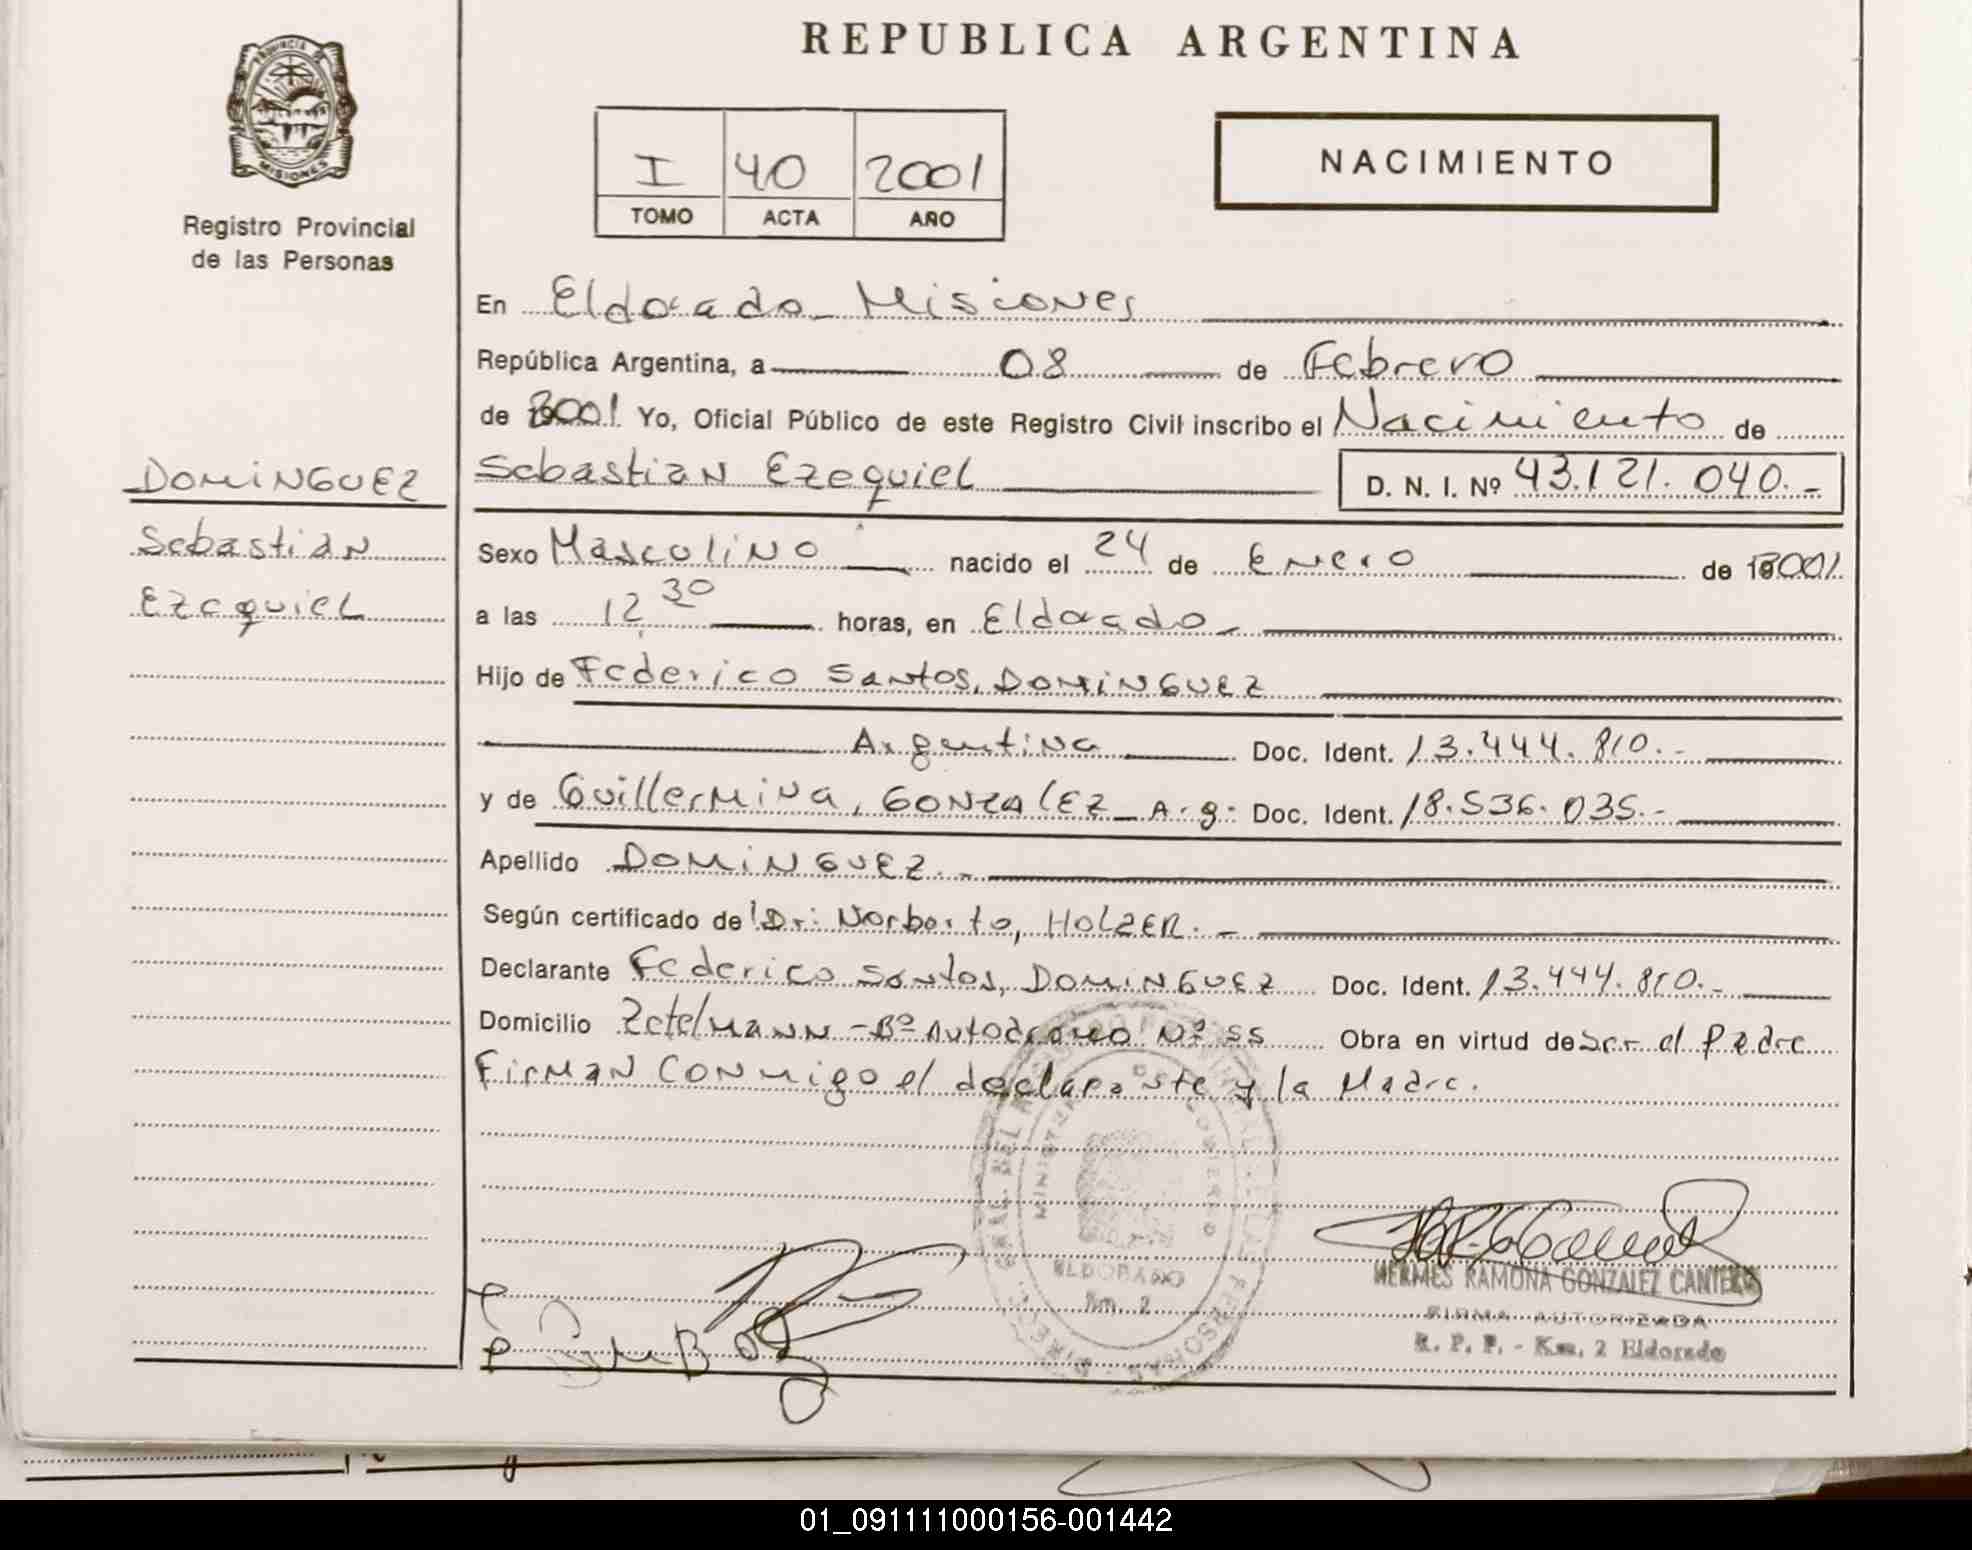 REPUBLICA ARGENTINA
PROVINCIA DE
MISIONES
Registro Provincial
de las Personas
I 40 2001
TOMO ACTA AÑO
NACIMIENTO
En Eldorado Misiones
República Argentina, a 08 de Febrero
de 2001 Yo, Oficial Público de este Registro Civil inscribo el Nacimiento de
DOMINGUEZ
Sebastian Ezequiel D. N. I. Nº 43.121.040.-
Sebastian
Sexo Masculino nacido el 24 de Enero de 2001
Ezequiel
a las 12 30 horas, en Eldorado
Hijo de Federico Santos, DOMINGUEZ
Argentina Doc. Ident. 13.444.810.-
y de Guillermina, GONZALEZ Arg: Doc. Ident. 18.536.035.-
Apellido DOMINGUEZ.-
Según certificado de Dr: Norberto, HOLZER.-
Declarante Federico Santos, DOMINGUEZ Doc. Ident. 13.444.810.-
Domicilio Zetelmann - Bº Autodromo Nº 55 Obra en virtud de Ser el Padre
Firman conmigo el declarante y la Madre.
MINISTERIO DE GOBIERNO
ELDORADO
Km. 2
HERMES RAMONA GONZALEZ CANTERO
FIRMA AUTORIZADA
R. P. P. - Km. 2 Eldorado
01_091111000156-001442